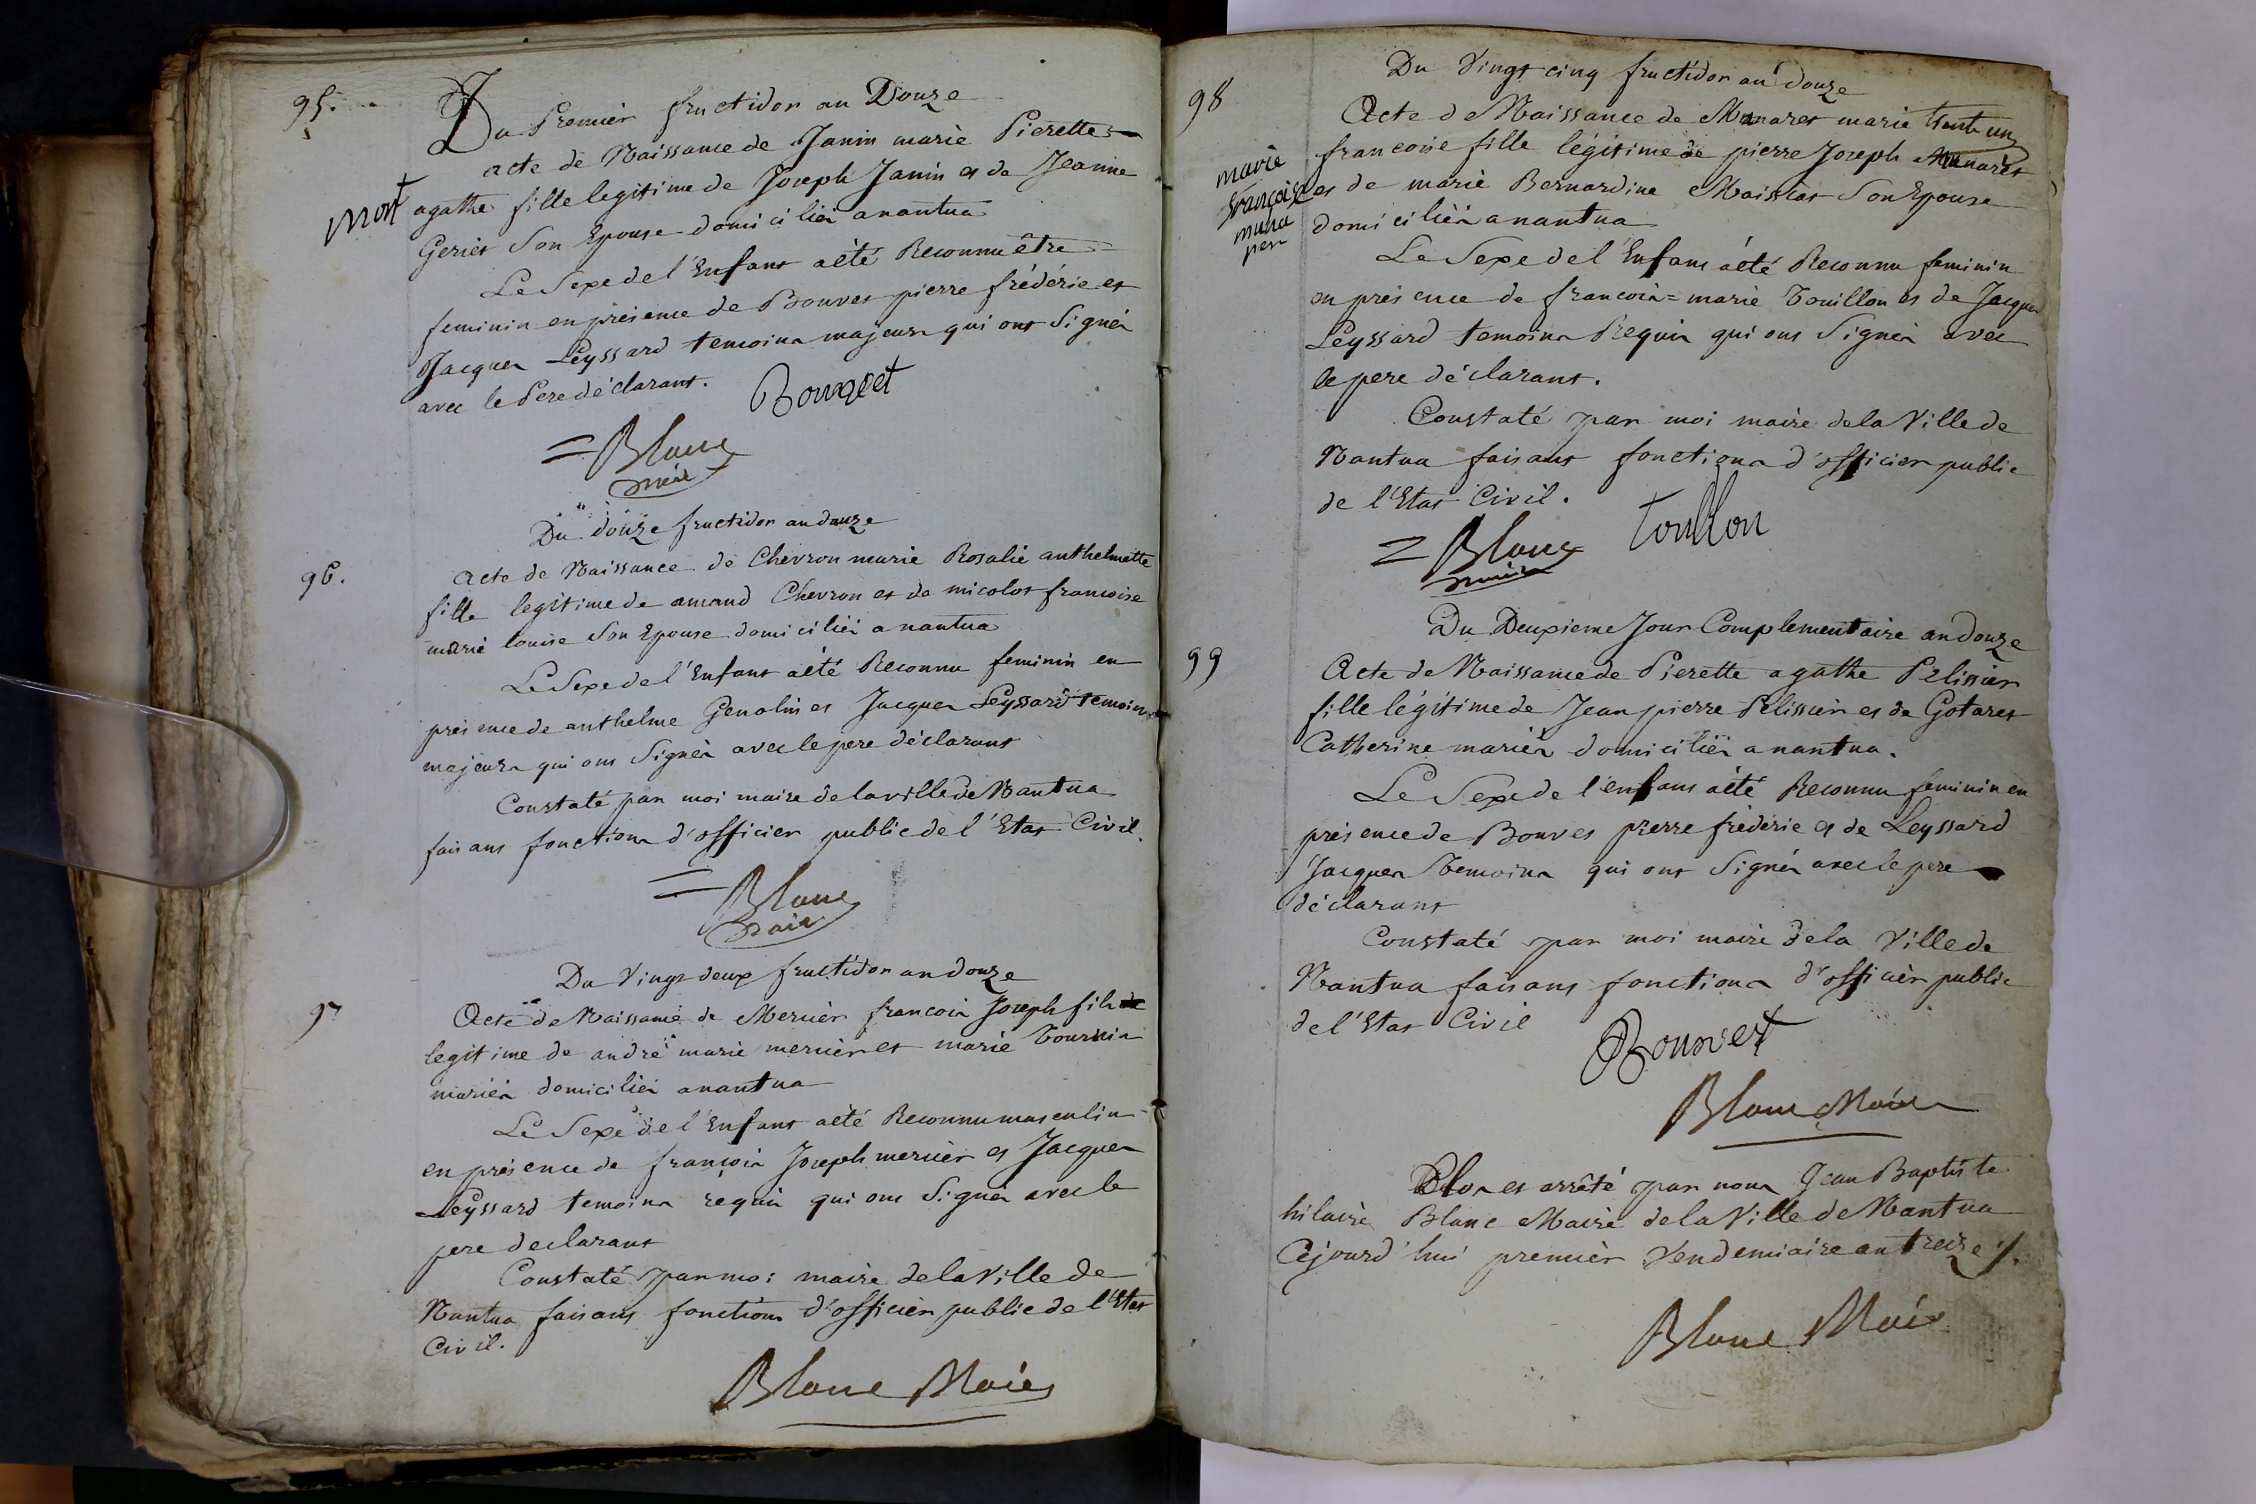 95.
Du Premier fructidor an Douze
acte de Naissance de Janin marie Pierette
agathe fille legitime de Joseph Janin et de Jeanne
mort
Geriet Son Epouse domiciliés a nantua
Le Sexe de l'Enfant a été Reconnu être
feminin en présence de Bouvet pierre frédéric et
Jacques Leyssard temoins majeurs qui ont Signés
avec le Pere déclarant.
Bouvet
Blanc
Maire
96.
Du douze fructidor an douze
Acte de Naissance de Chevron marie Rosalie anthelmette
fille legitime de amand Chevron et de micolot francoise
marie louise Son Epouse domiciliés a nantua
Le Sexe de l'Enfant a été Reconnu feminin en
présence de anthelme Genolin et Jacques Leyssard temoins
majeurs qui ont Signés avec le pere déclarant
Constaté par moi maire de la ville de Nantua
faisant fonctions d'officier public de l'Etat Civil.
Blanc
Maire
97
Du Vingt deux fructidor an douze
Acte de Naissance de Mercier francois Joseph fils
legitime de andré marie mercier et marie Tournier
mariés domiciliés a nantua
Le Sexe de l'Enfant a été Reconnu masculin
en présence de francois Joseph mercier et Jacques
Leyssard temoins requis qui ont Signés avec le
pere declarant
Constaté par moi maire de la Ville de
Nantua faisant fonctions d'officier public de l'Etat
Civil.
Blanc Maire
98
Du Vingt cinq fructidor an douze
Acte de Naissance de Munaret marie
francoise fille légitime de pierre Joseph Munaret
marie
françoise
muna
et de marie Bernardine Maissiat Son Epouse
domiciliés a nantua
Le Sexe de l'Enfant a été Reconnu feminin
en présence de francois=marie Touillon et de Jacques
Leyssard temoins Requis qui ont Signés avec
le pere déclarant.
Constaté par moi maire de la Ville de
Nantua faisant fonctions d'officier public
de l'Etat Civil.
Touillon
Blanc
Maire
99
Du Deuxieme Jour Complementaire an Douze
Acte de Naissance de Pierette agathe Pelissier
fille légitime de Jean pierre Pelissier et de Gotaret
Catherine mariés domiciliés a nantua.
Le Sexe de l'enfant a été Reconnu feminin en
présence de Bouvet pierre frederic et de Leyssard
Jacques Temoins qui ont Signés avec le pere
déclarant
Constaté par moi maire de la Ville de
Nantua faisant fonctions d'officier public
de l'Etat Civil
Bouvet
Blanc Maire
Clos et arrêté par nous Jean Baptiste
hilaire Blanc Maire de la Ville de Nantua
Cejourd'hui premier Vendemiaire an treize ./.
Blanc Maire